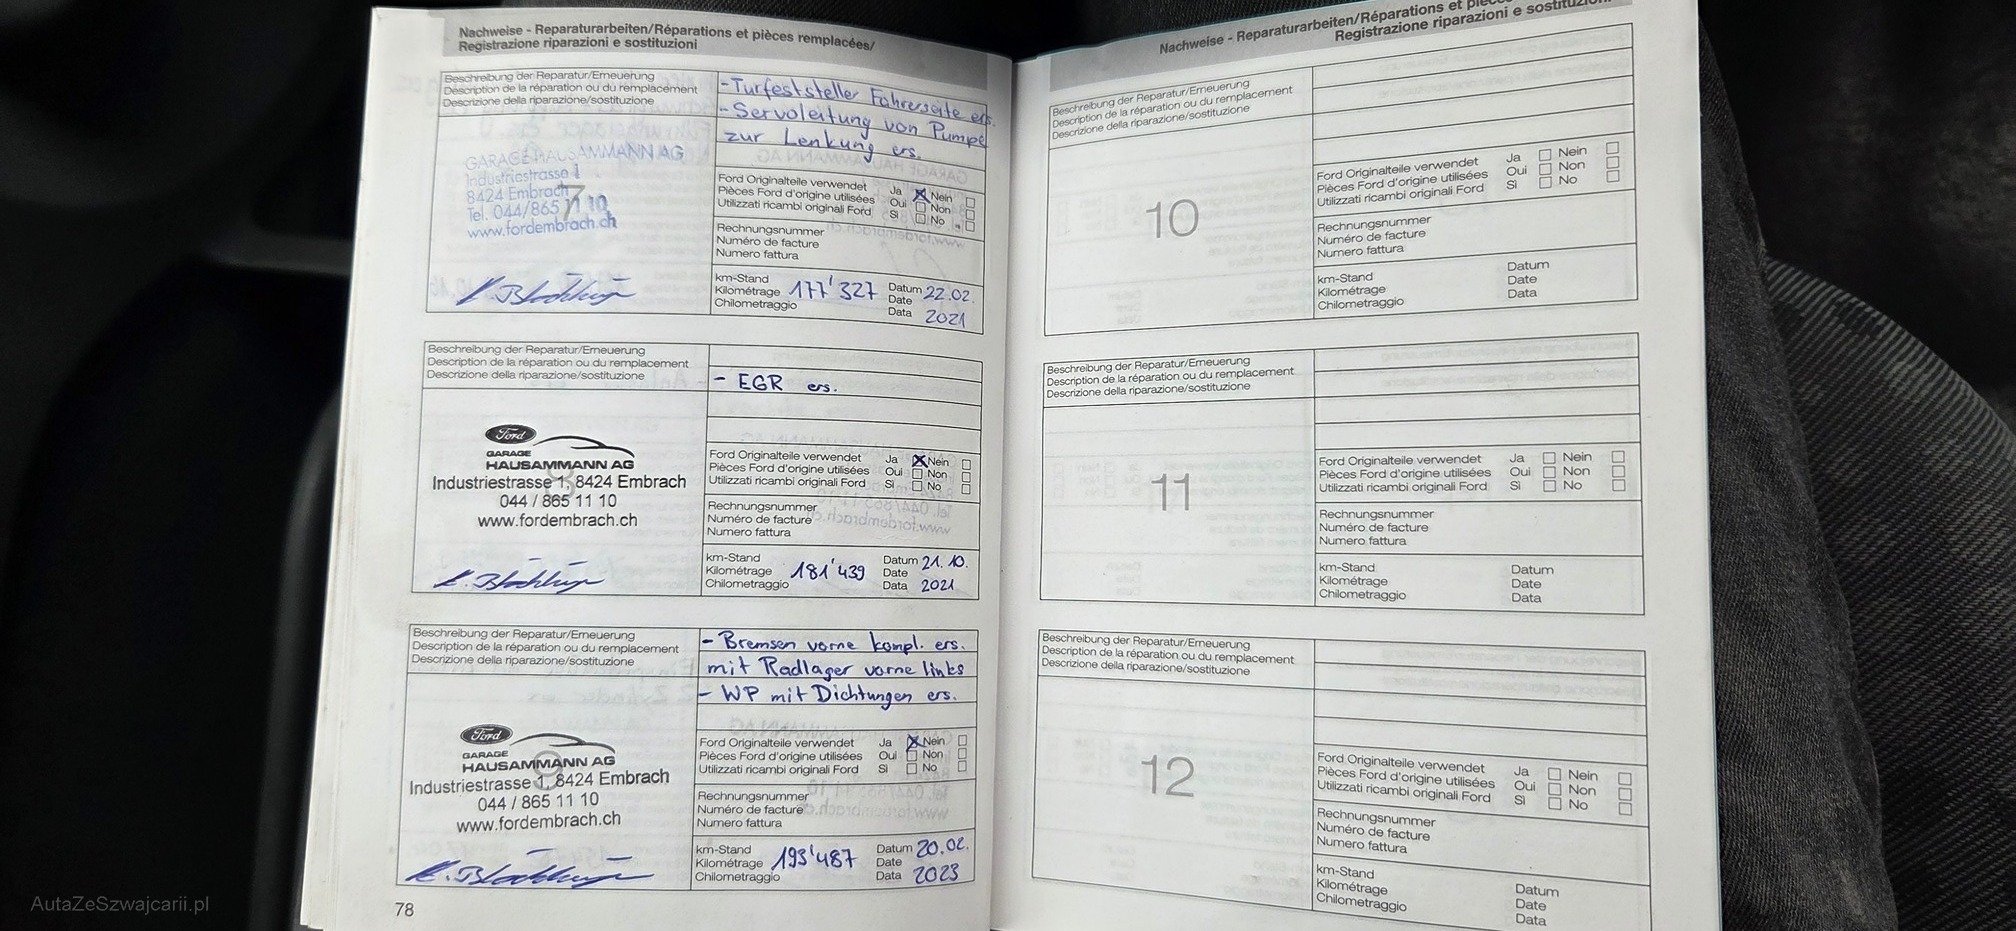 Nachweise - Reparaturarbeiten/Réparations et pièces remplacées/
Registrazione riparazioni e sostituzioni
Beschreibung der Reparatur/Erneuerung
Description de la réparation ou du remplacement
Descrizione della riparazione/sostituzione
- Türfeststeller Fahrerseite ers.
- Servoleitung von Pumpe
zur Lenkung ers.
GARAGE HAUSAMMANN AG
Industriestrasse 1
8424 Embrach
Tel. 044/865 11 10
www.fordembrach.ch
7
Ford Originalteile verwendet Ja Nein
Pièces Ford d'origine utilisées Oui Non
Utilizzati ricambi originali Ford Sì No
Rechnungsnummer
Numéro de facture
Numero fattura
km-Stand
Kilométrage
Chilometraggio
177'327
Datum
Date
Data
22.02.
2021
Beschreibung der Reparatur/Erneuerung
Description de la réparation ou du remplacement
Descrizione della riparazione/sostituzione
- EGR ers.
Ford
GARAGE
HAUSAMMANN AG
Industriestrasse 1, 8424 Embrach
044 / 865 11 10
www.fordembrach.ch
Ford Originalteile verwendet Ja Nein
Pièces Ford d'origine utilisées Oui Non
Utilizzati ricambi originali Ford Sì No
Rechnungsnummer
Numéro de facture
Numero fattura
km-Stand
Kilométrage
Chilometraggio
181'439
Datum
Date
Data
21.10.
2021
Beschreibung der Reparatur/Erneuerung
Description de la réparation ou du remplacement
Descrizione della riparazione/sostituzione
- Bremsen vorne kompl. ers.
mit Radlager vorne links
- WP mit Dichtungen ers.
Ford
GARAGE
HAUSAMMANN AG
Industriestrasse 1, 8424 Embrach
044 / 865 11 10
www.fordembrach.ch
Ford Originalteile verwendet Ja Nein
Pièces Ford d'origine utilisées Oui Non
Utilizzati ricambi originali Ford Sì No
Rechnungsnummer
Numéro de facture
Numero fattura
km-Stand
Kilométrage
Chilometraggio
193'487
Datum
Date
Data
20.02.
2023
78
Nachweise - Reparaturarbeiten/Réparations et pièces
Registrazione riparazioni e sostituzioni
Beschreibung der Reparatur/Erneuerung
Description de la réparation ou du remplacement
Descrizione della riparazione/sostituzione
10
Ford Originalteile verwendet Ja Nein
Pièces Ford d'origine utilisées Oui Non
Utilizzati ricambi originali Ford Sì No
Rechnungsnummer
Numéro de facture
Numero fattura
km-Stand Datum
Kilométrage Date
Chilometraggio Data
Beschreibung der Reparatur/Erneuerung
Description de la réparation ou du remplacement
Descrizione della riparazione/sostituzione
11
Ford Originalteile verwendet Ja Nein
Pièces Ford d'origine utilisées Oui Non
Utilizzati ricambi originali Ford Sì No
Rechnungsnummer
Numéro de facture
Numero fattura
km-Stand Datum
Kilométrage Date
Chilometraggio Data
Beschreibung der Reparatur/Erneuerung
Description de la réparation ou du remplacement
Descrizione della riparazione/sostituzione
12
Ford Originalteile verwendet Ja Nein
Pièces Ford d'origine utilisées Oui Non
Utilizzati ricambi originali Ford Sì No
Rechnungsnummer
Numéro de facture
Numero fattura
km-Stand Datum
Kilométrage Date
Chilometraggio Data
AutaZeSzwajcarii.pl